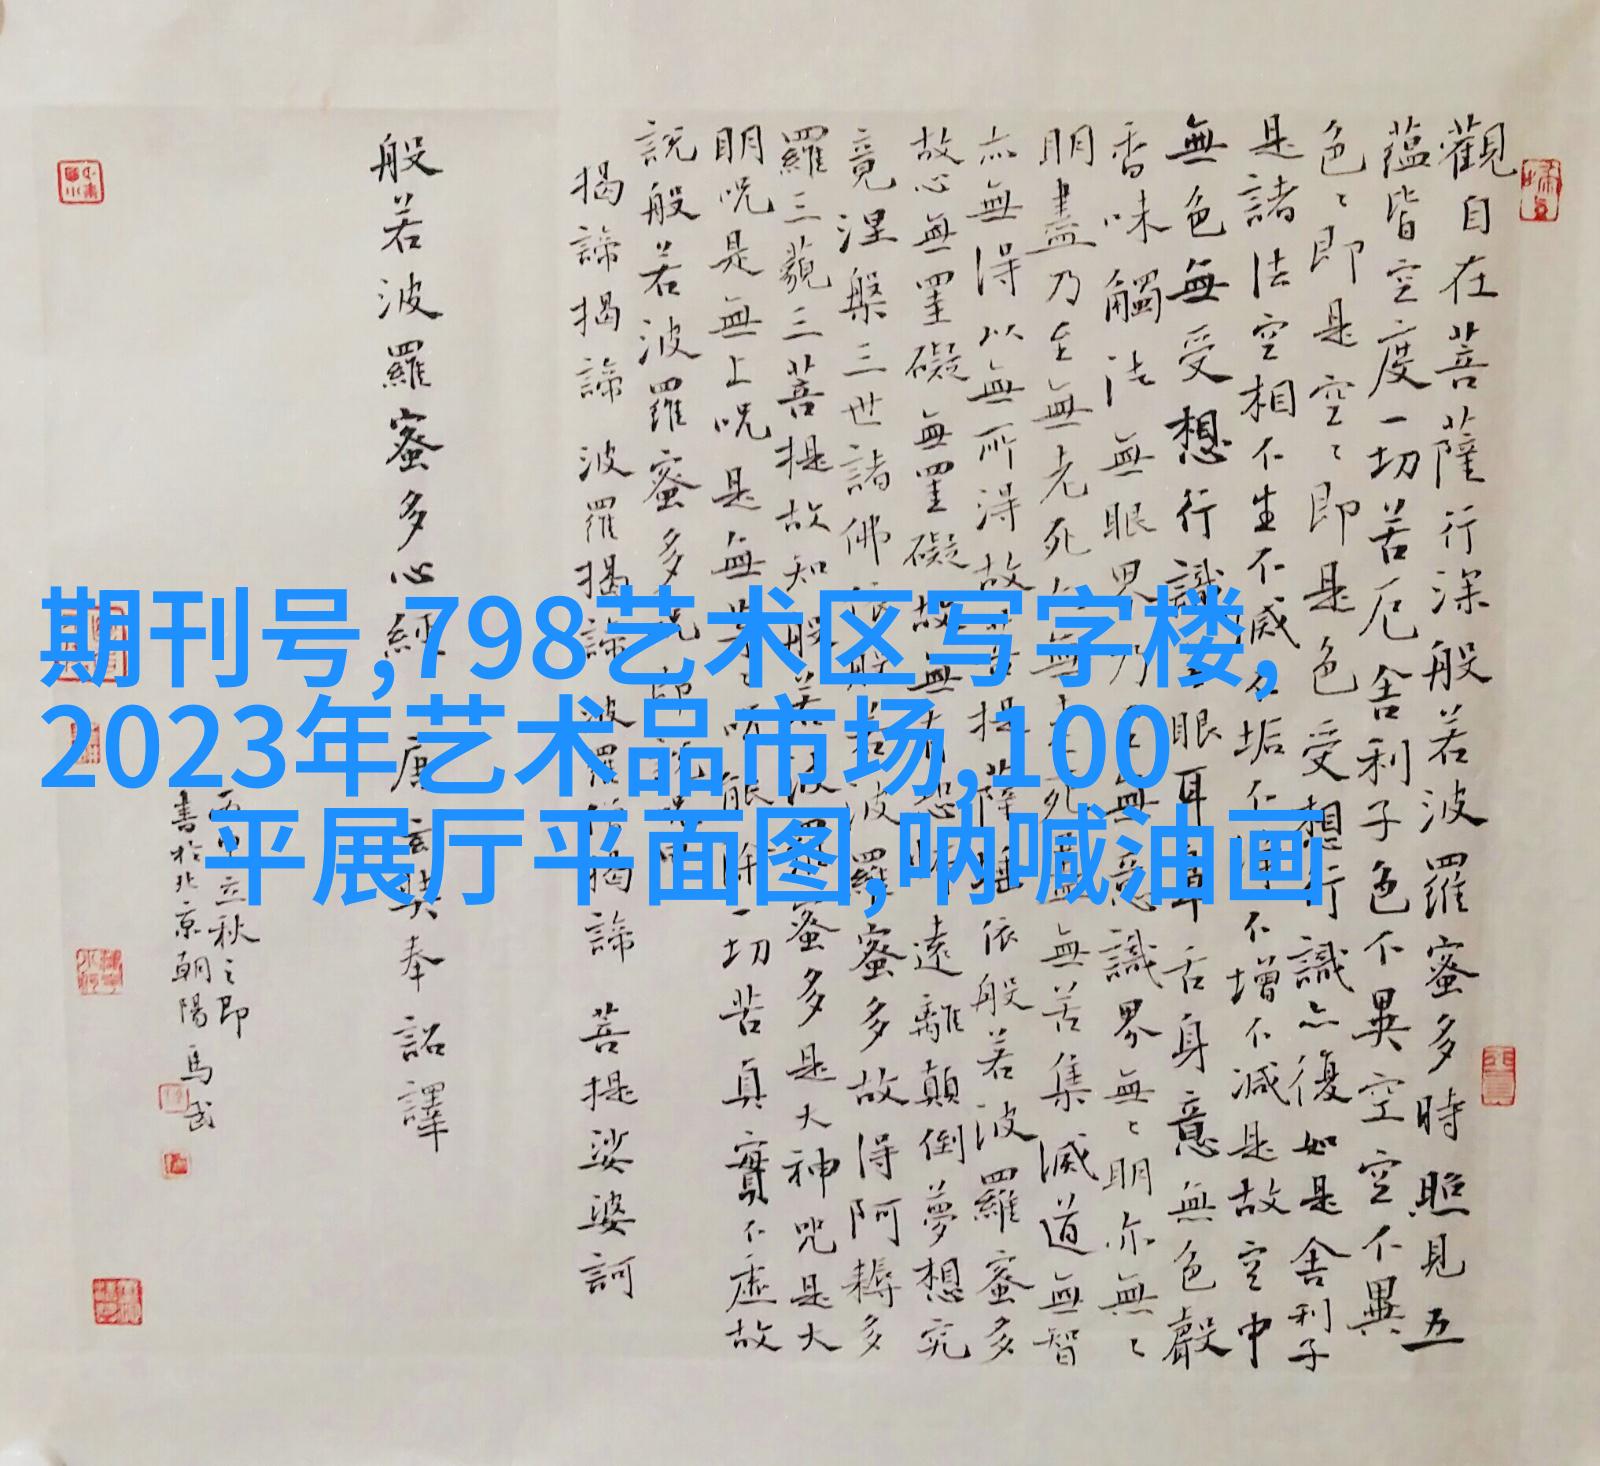 期刊号,798艺术区写字楼,
2023年艺术品市场,100
平展厅平面图,呐喊油画
觀自在菩薩行深般若波羅蜜多時照見五
蘊皆空度一切苦厄舍利子色不異空空不異
色〻即是空〻即是色受想行識亦復如是舍利子
是諸法空相不生不滅不垢不淨不增不減是故空中
無色無受想行識無眼耳鼻舌身意無色聲
香味觸法無眼界乃至無意識界無〻明亦無〻
明盡乃至無老死亦無老死盡無苦集滅道無智
亦無得以無所得故菩提薩埵依般若波羅蜜多
故心無罣礙無罣礙故無有恐怖遠離顛倒夢想究
竟涅槃三世諸佛依般若波羅蜜多故得阿耨多
羅三藐三菩提故知般若波羅蜜多是大神咒是大
明呪是無上呪是無等〻呪能除一切苦真實不虛故
說般若波羅蜜多呪即說呪曰
揭諦揭諦 波羅揭諦 波羅僧揭諦 菩提娑婆訶
般若波羅蜜多心經 唐玄奘奉詔譯
丙申立秋之即
書於北京朝陽 馬武